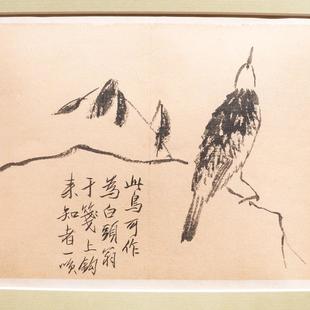 此鳥可作
為白頭翁
于箋上鈎
来知者一唤